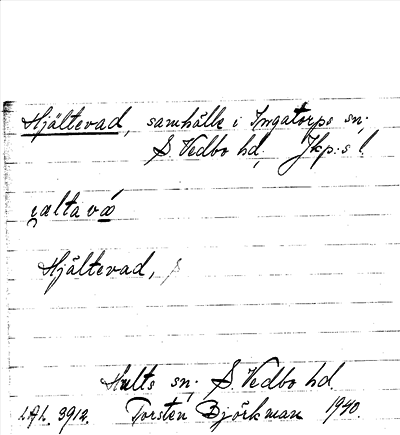 Hjältevad, samhälle i Ingatorps sn,
S. Vedbo hd, Jkp:s l.
i̯æltavǽ
Hjältevad,
Hults sn, S. Vedbo hd
LAL. 3912. Torsten Björkman 1940.